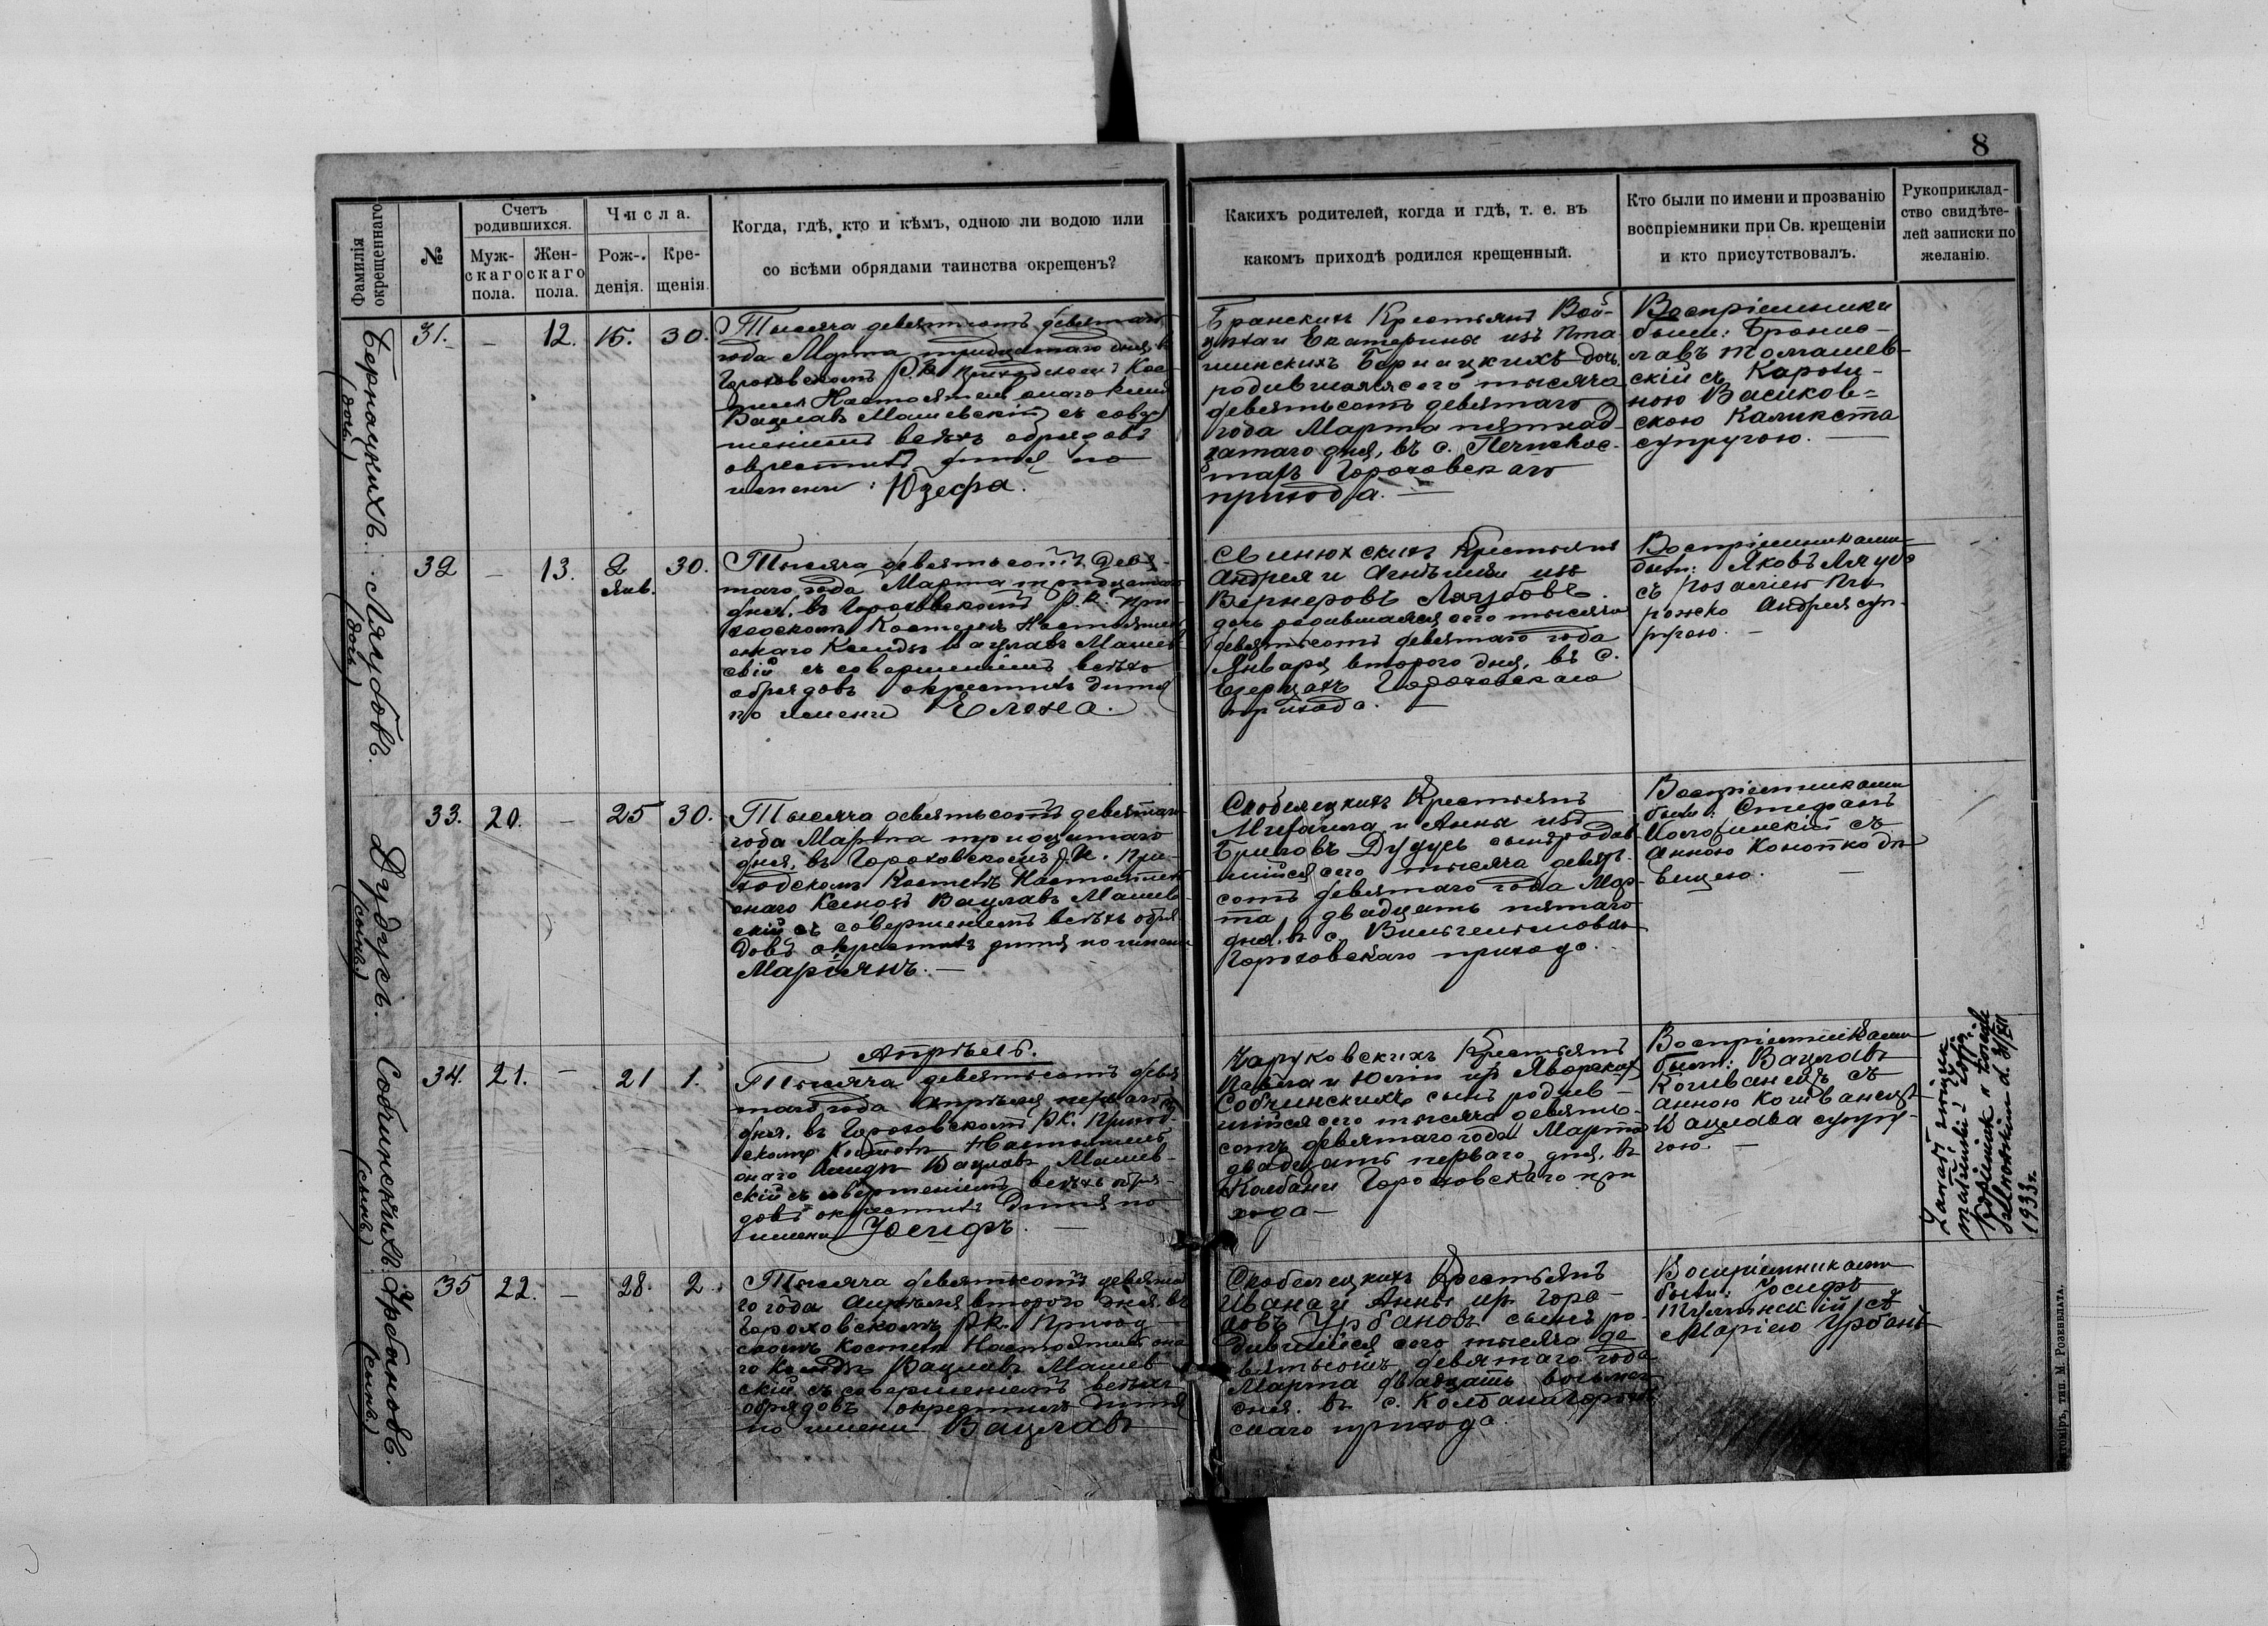 8
Фамилія
окрещеннаго
№
Счетъ
родившихся.
Муж-
скаго
пола.
Жен-
скаго
пола.
Числа.
Рож-
денія.
Кре-
щенія.
Когда, гдѣ, кто и кѣмъ, одною ли водою или
со всѣми обрядами таинства окрещенъ?
Какихъ родителей, когда и гдѣ, т. е. въ
какомъ приходѣ родился крещенный.
Кто были по имени и прозванію
воспріемники при Св. крещеніи
и кто присутствовалъ.
Рукоприклад-
ство свидѣте-
лей записки по
желанію.
Бернацкихъ.
(дочь)
31.
—
12.
15.
30.
Тысяча девятьсотъ девятаго
года Марта тридцатаго дня, въ
Гороховскомъ Р.К. приходскомъ Кос-
Настоятель онаго
Вацлавъ Машевскій съ совер-
шеніемъ всѣхъ обрядовъ
окрестилъ дитя по
имени: Юзефа.
Бранскихъ Крестьянъ Вой-
цѣха и Екатерины изъ Пта-
шинскихъ Бернацкихъ дочь,
родившаяся сего тысяча
девятьсотъ девятаго
года Марта пятнад-
цатаго дня, въ с.
Гороховскаго
прихода. —
Воспріемники
были: Бронис-
лавъ Томашев-
скій съ Кароли-
ною Васиков-
скою Каликста
супругою. —
Лязубовъ.
(дочь)
32
—
13.
2
Янв.
30.
Тысяча девятьсотъ девя-
таго года Марта тридцатаго
дня, въ Гороховскомъ Р.К. при-
ходскомъ Костелѣ Настоятель
онаго Ксендзъ Вацлавъ Машев-
скій съ совершеніемъ всѣхъ
обрядовъ окрестилъ дитя
по имени Елена.
Свинюхскихъ Крестьянъ
Андрея и Агнѣшки изъ
Вернеровъ Лязубовъ
дочь родившаяся сего тысяча
девятьсотъ девятаго года
Января второго дня, въ с.
Гороховскаго
прихода. —
Воспріемниками
были: Яковъ Лязубъ
съ Розаліею
Андрея суп-
ругою. —
Дудусъ.
(сынъ)
33.
20.
—
25
30.
Тысяча девятьсотъ девятаго
года Марта тридцатаго
дня, въ Гороховскомъ Р.К. при-
ходскомъ Костелѣ Настоятель
онаго Ксендзъ Вацлавъ Машев-
скій съ совершеніемъ всѣхъ обря-
довъ окрестилъ дитя по имени
Маріянъ. —
Скобелецкихъ Крестьянъ
Михаила и Анны изъ
Дудусъ сынъ родив-
шійся сего тысяча девять-
сотъ девятаго года Мар-
та двадцать пятаго
дня, въ с.
Гороховскаго прихода.
Воспріемниками
были: Стефанъ
съ
Анною Конопко дѣ-
вицею. —
Собчинскихъ.
(сынъ)
34.
21.
—
21
1.
Апрѣль.
Тысяча девятьсотъ девя
таго года Апрѣля перваго
дня, въ Гороховскомъ Р.К. Приход-
скомъ Костелѣ Настоятель
онаго Ксендзъ Вацлавъ Машев-
скій съ совершеніемъ всѣхъ обря-
довъ окрестилъ дитя по
имени Іосифъ. —
Чаруковскихъ Крестьянъ
Павла и Юліи изъ Яворскихъ
Собчинскихъ сынъ родив-
шійся сего тысяча девять-
сотъ девятаго года Марта
двадцать перваго дня, въ
Колбани Гороховскаго при
хода —
Воспріемниками
были: Вацлавъ
съ
Анною
Вацлава супру-
гою. —
Zawarł związek
małżeński z Zofją
1933 r.
Урбановъ.
(сынъ)
35
22.
—
28.
2.
Тысяча девятьсотъ девята
го года Апрѣля второго дня, въ
Гороховскомъ Р.К. Приход-
скомъ Костелѣ Настоятель она
го Ксендзъ Вацлавъ Машев
скій съ совершеніемъ всѣхъ
обрядовъ окрестилъ дитя
по имени Вацлавъ
Скобелецкихъ Крестьянъ
Ивана и Анны изъ
Урбановъ сынъ ро-
дившійся сего тысяча де
вятьсотъ девятаго года
Марта двадцать восьмого
дня, въ с. Колбани Горохов
скаго прихода.
Воспріемниками
были: Іосифъ
съ
Маріею Урбанъ
тип. М. Розенблата.